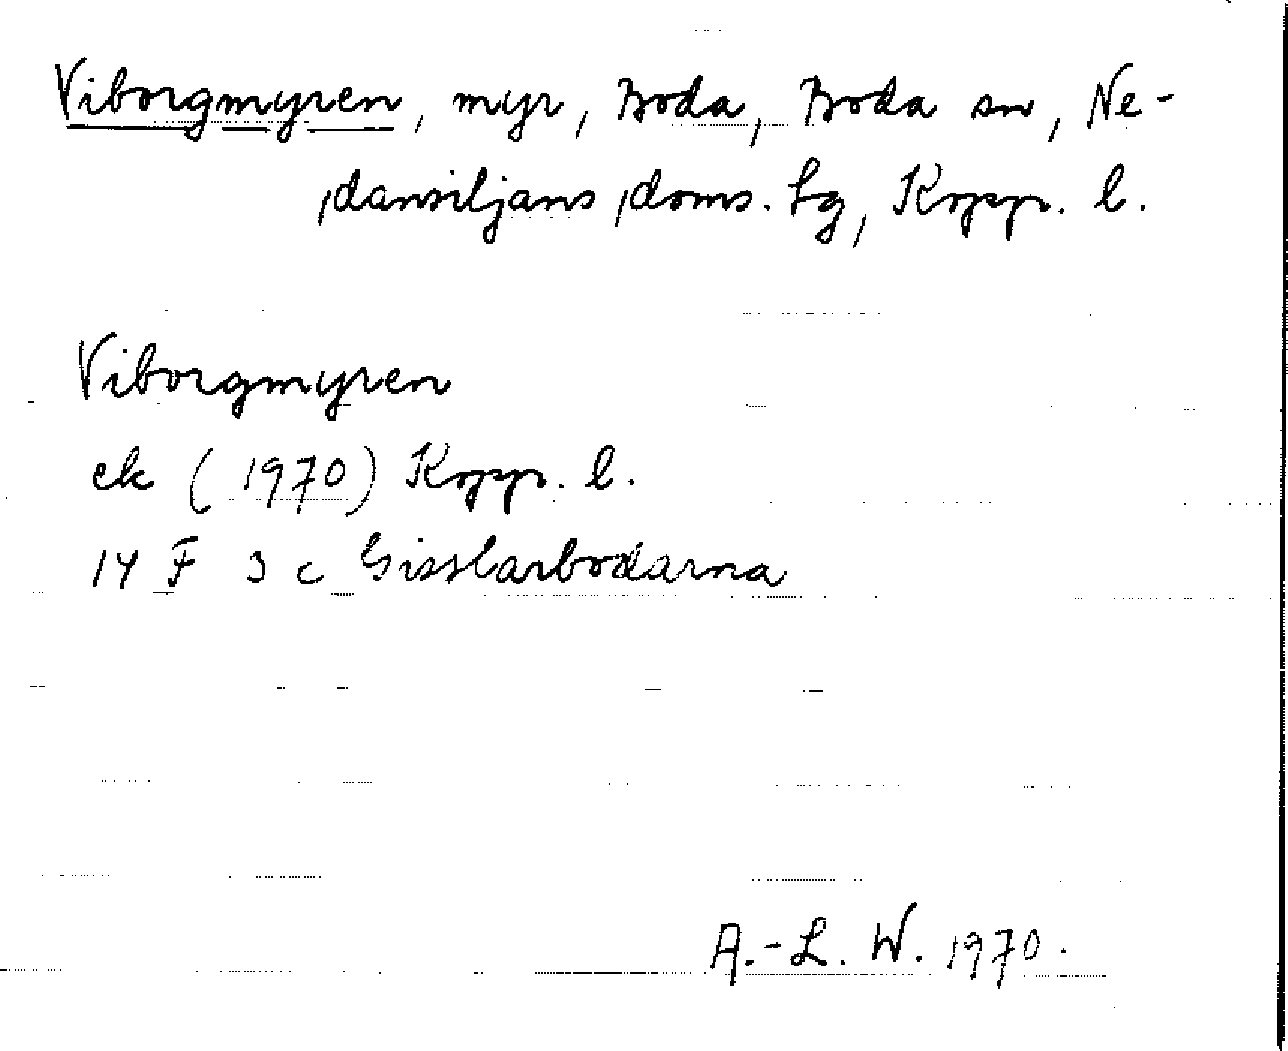 Viborgmyren, myr, Boda, Boda sn, Ne-
dansiljans doms. tg, Kopp. l.
Viborgmyren
ek (1970) Kopp. l.
14 F 3 c Gisslarbodarna
A.-L. W. 1970.